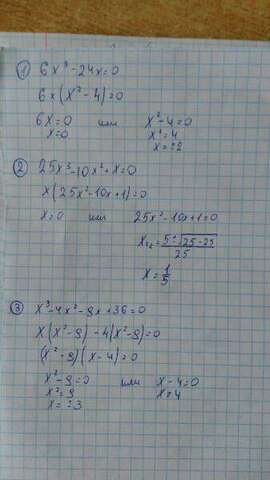 ① 6x³-24x=0
6x(x²-4)=0
6x=0 или x²-4=0
x=0 x²=4
x=±2
② 25x³-10x²+x=0
x(25x²-10x+1)=0
x=0 или 25x²-10x+1=0
x₁,₂=(5±√(25-25))/25
x=1/5
③ x³-4x²-9x+36=0
x(x²-9)-4(x²-9)=0
(x²-9)(x-4)=0
x²-9=0 или x-4=0
x²=9 x=4
x=±3